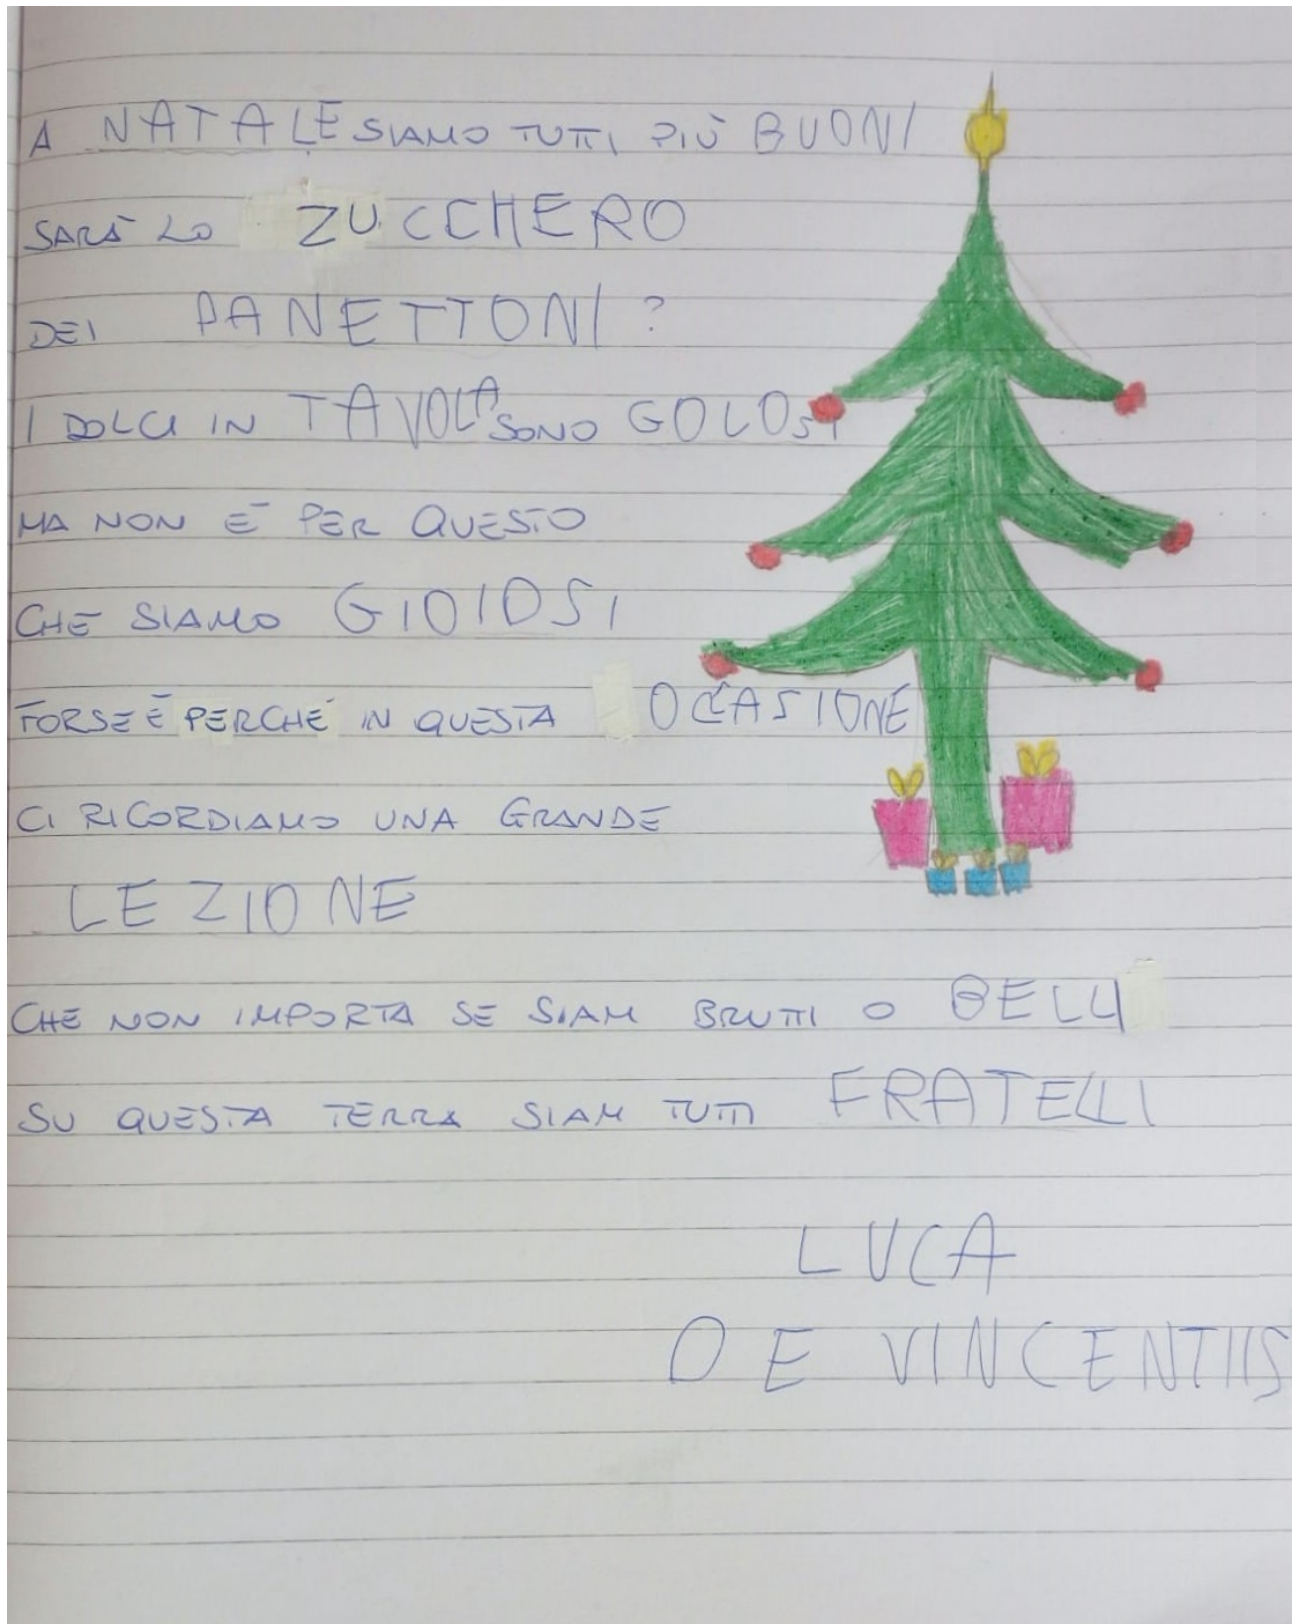 A NATALE SIAMO TUTTI PIÙ BUONI
SARÀ LO ZUCCHERO
DEI PANETTONI?
I DOLCI IN TAVOLA SONO GOLOSI
MA NON È PER QUESTO
CHE SIAMO GIOIOSI
FORSE È PERCHÉ IN QUESTA OCCASIONE
CI RICORDIAMO UNA GRANDE
LEZIONE
CHE NON IMPORTA SE SIAM BRUTTI O BELLI
SU QUESTA TERRA SIAM TUTTI FRATELLI
LUCA
DE VINCENTIIS